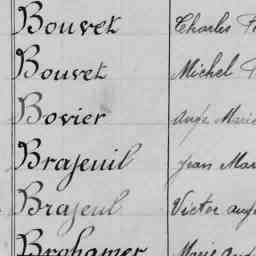 Bouvet Charles
Bouvet Michel
Bovier Ange Marie
Brajeuil Jean Mar
Brajeul Victor ang
Brohamer Marie